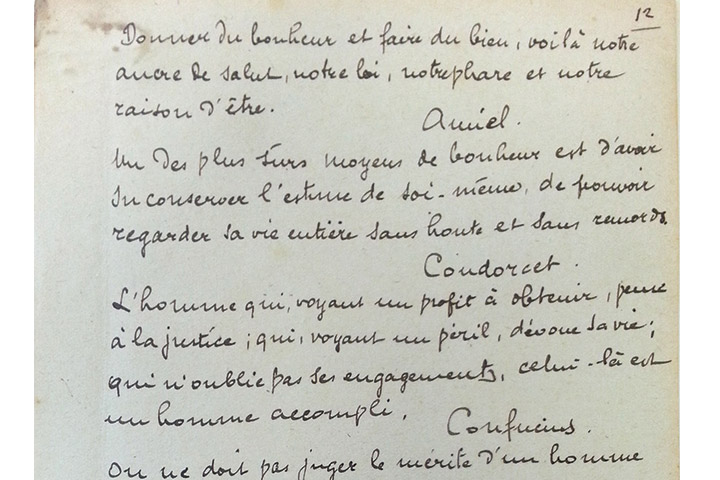 12
Donner du bonheur et faire du bien, voilà notre
ancre de salut, notre loi, notre phare et notre
raison d'être.
Amiel.
Un des plus sûrs moyens de bonheur est d'avoir
su conserver l'estime de soi-même, de pouvoir
regarder sa vie entière sans honte et sans remords.
Condorcet.
L'homme qui, voyant un profit à obtenir, pense
à la justice ; qui, voyant un péril, dévoue sa vie ;
qui n'oublie pas ses engagements, celui-là est
un homme accompli.
Confucius.
On ne doit pas juger le mérite d'un homme